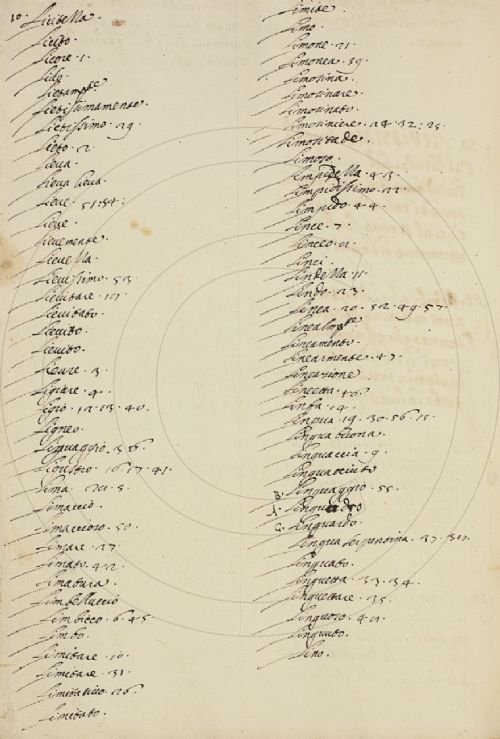 10.
Licitella.
Licito.
Licore. 1.
Lietissimamente.
Lietissimo. 29.
Lieto. 2.
Lieva.
Lieva lieva.
Lieve. 51:54:
Lieve.
Lievemente.
Lievella.
Lievissimo. 53.
Lievitare.
Lievitato.
Lievito.
Lievito.
Lievre. 3.
Ligiare. 4.
Ligio. 12. 13. 40.
Ligneo.
Liguaggio. 36.
Ligustro. 16. 17. 41.
Lima.
Limaccio.
Limaccioso. 50.
Limare. 27.
Limato. 42.
Limatura.
Limbelluccio
Limbicco. 6. 45.
Limbo.
Limitare. 10.
Limitare. 31.
Limitativo. 26.
Limitato.
Limite.
Limo.
Limone. 21.
Limonea. 39.
Limosina.
Limosinare.
Limosinato.
Limosiniere. 24. 32: 25.
Limosità de.
Limoso.
Limpidella. 43.
Limpidissimo. 22.
Limpido. 44.
Lince. 7.
Linceo.
Linci.
Lindella. 11.
Lindo. 23.
Linea. 20. 52. 49. 57.
Lineamento.
Linearmente. 47.
Lineazione
Linfa. 14.
Lingua. 19. 30. 56. 15.
Lingua buona.
Linguaccia. 9.
Linguacciuto
B. Linguaggio. 55.
A.
C. Linguardo.
Lingua serpentina. 37.
Linguato.
Linguetta. 33. 34.
Linguettare. 35.
Linguoso.
Linguto.
Lino.